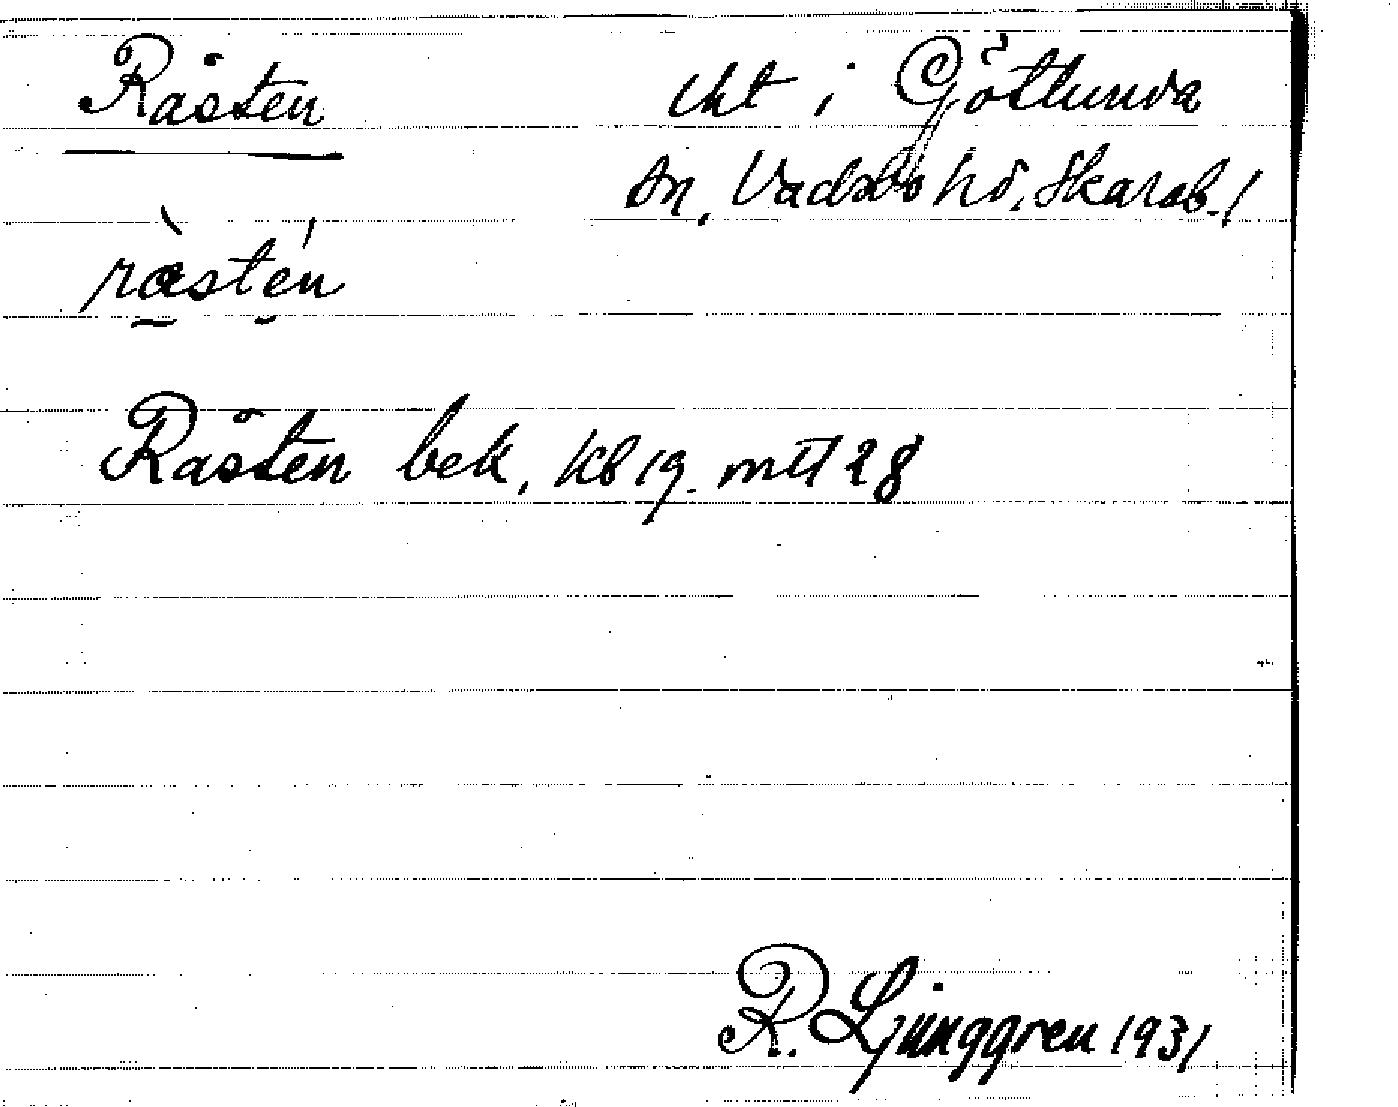 Råsten
tkt i Götlunda
sn, Vadsbo hd, Skarab. l
ràstén
Råsten bek, kb 19. mtl 28
R. Ljunggren 1931